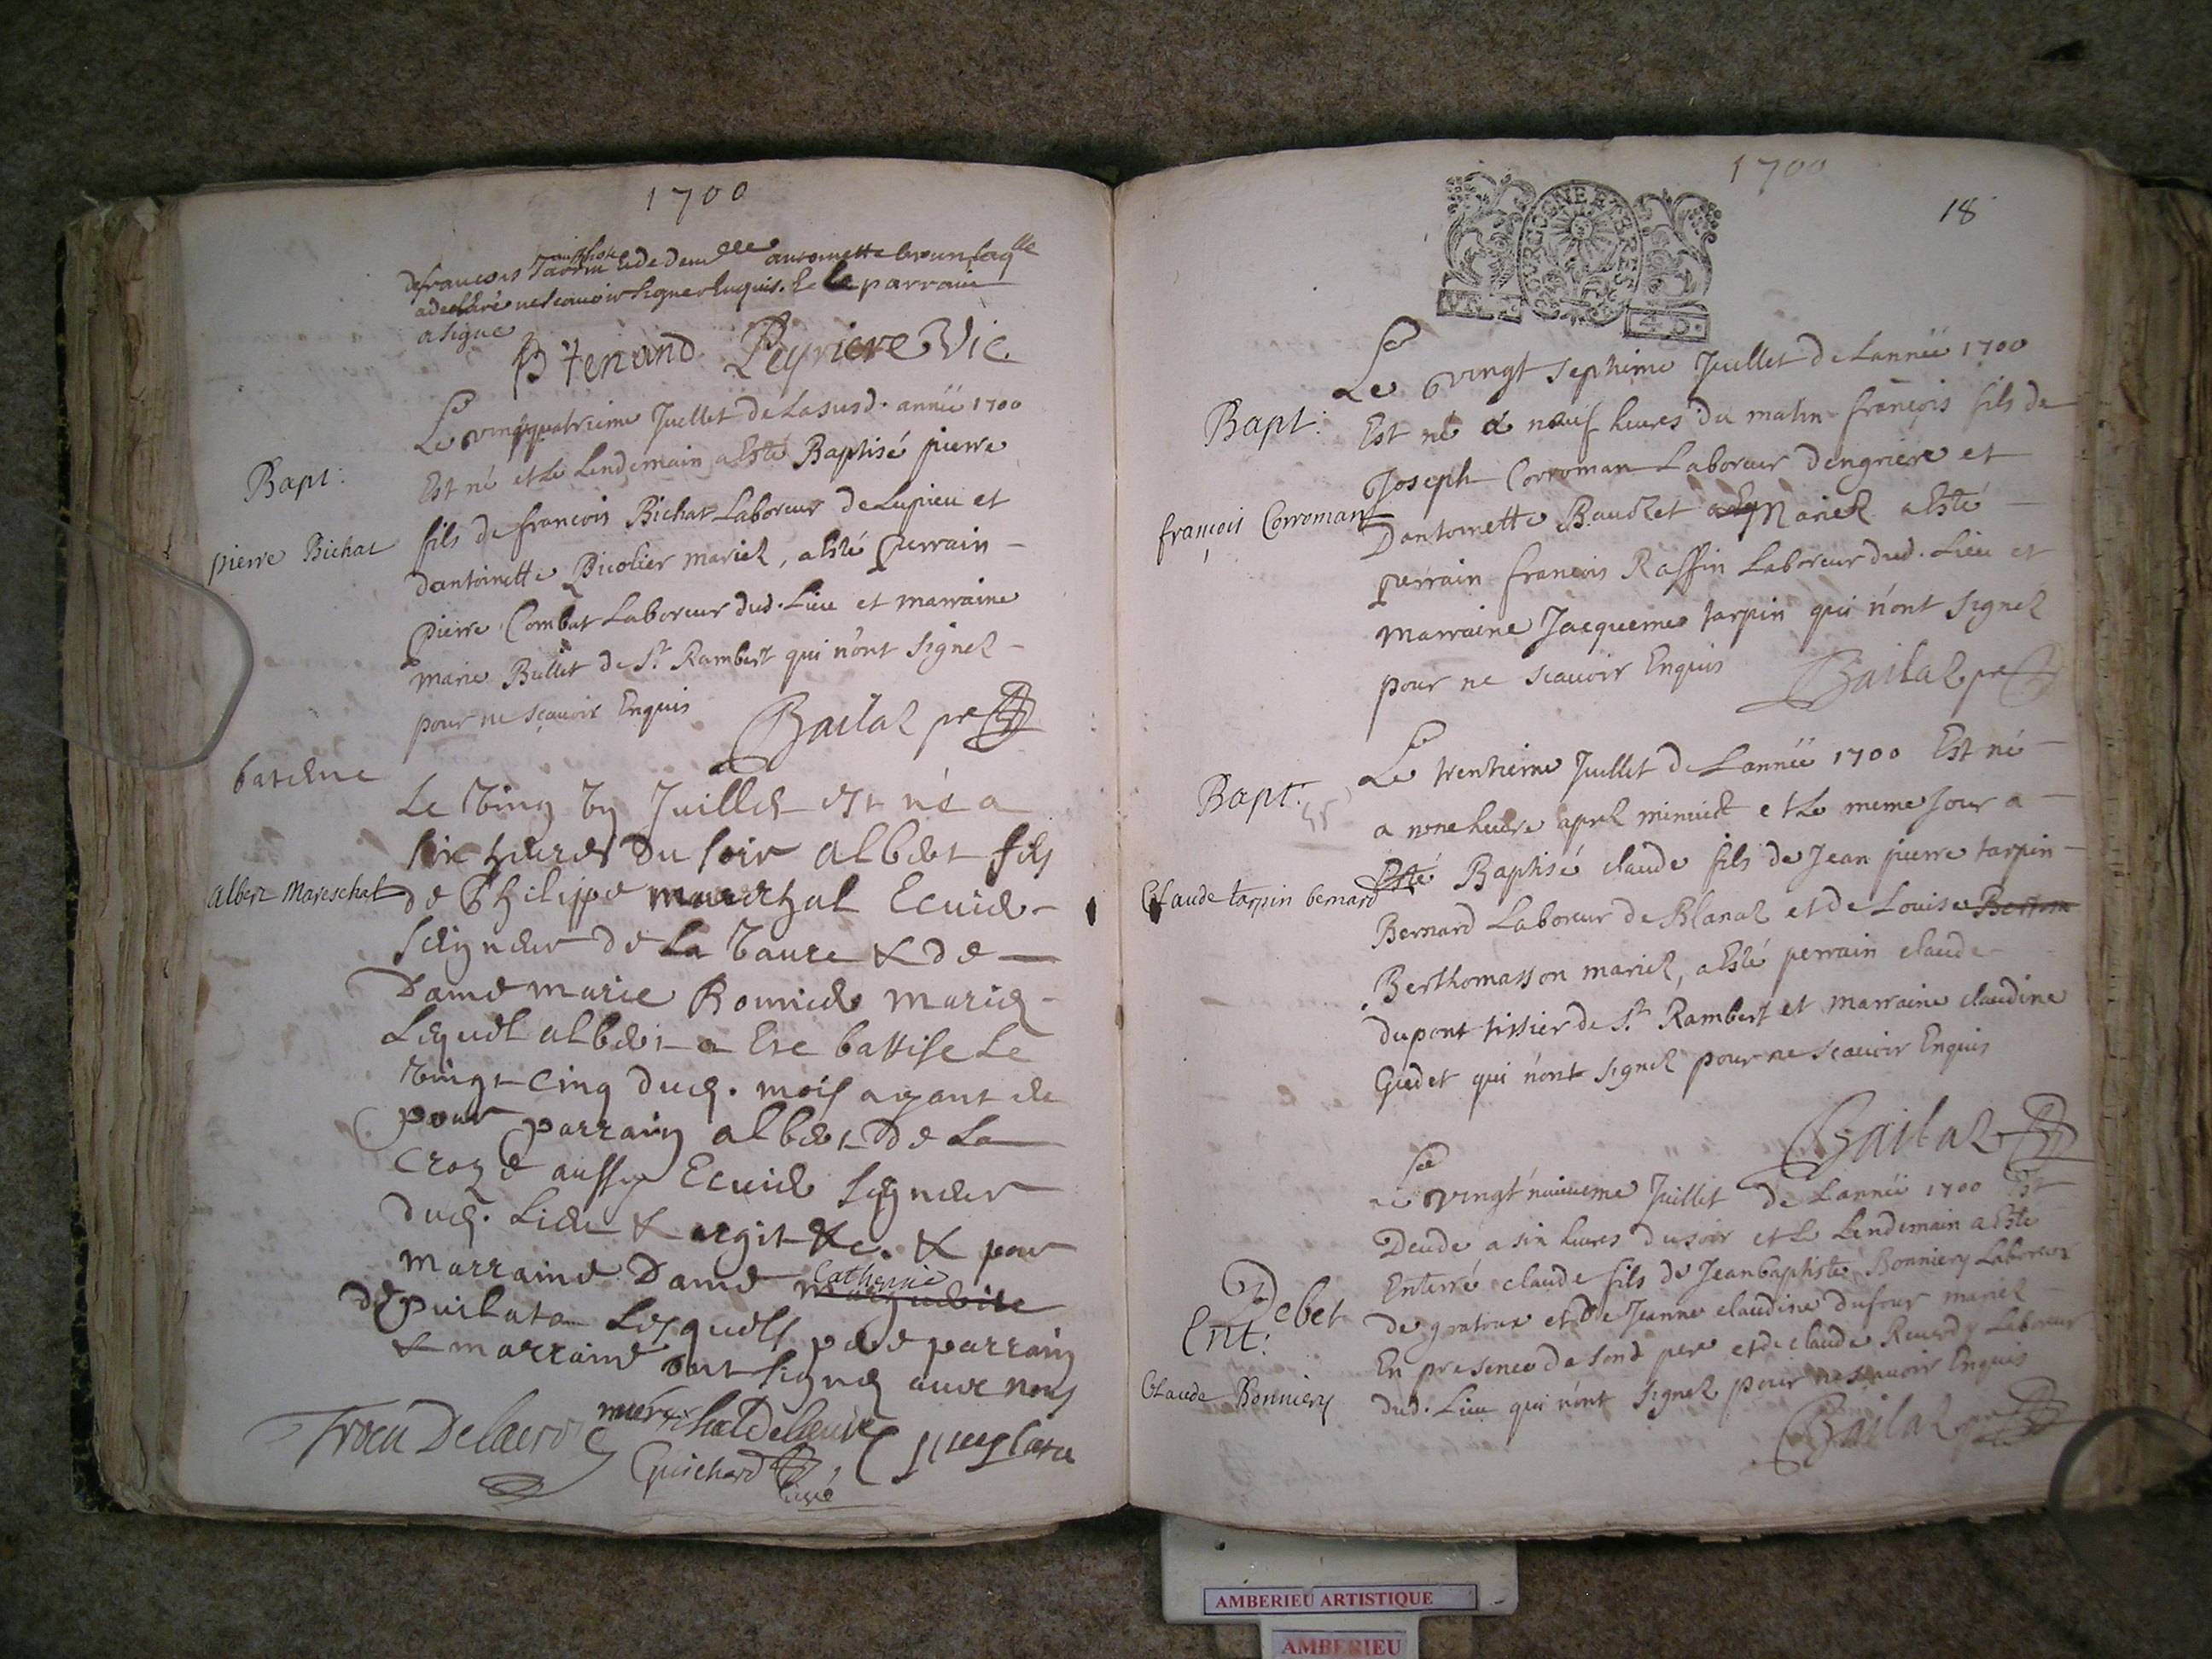 1700
de francois et de dem.lle antoinette brun laq.lle
a declaré ne scauoir signer enquis. Et le parrain
a signé
Peyriere Vic.
Le vingtquatrieme Juillet de La susd. année 1700
Bapt:
Est né et Le Lendemain a Esté Baptisé pierre
Pierre Bichat
fils de francois Bichat Laboreur de Lupieu et
dantoinette Bicolier mariez, a Esté perrain
pierre Combat Laboreur dud. Lieu et marraine
marie Bullet de St Rambert qui n'ont signez
pour ne sçauoir Enquis
Bailat pre
bateme
Le Ving Juillet est né a
six heures du soir albert fils
Albert Mareschal
de Philippe marechal Ecuier
seigneur de La Vaure & de
Dame marie Bonnier mariez
Lequel albert a Ete battise Le
Vingt Cinq dud. mois ayant eu
pour parrain albert De La
Croze aussy Ecuier seigneur
dud. Lieu & argit &c. & pour
marraine Dame Catherine
marguerite
Lesquels pere parrain
& marraine ont signez avec nous
Guichard curé
1700
18
Le vingt septieme Juillet de Lannée 1700
Bapt:
Est né a neuf heures du matin françois fils de
Joseph Corroman Laboreur dengriere et
françois Corroman
Dantoinette Baudet mariez a Esté
perrain francois Raffin Laboreur dud. Lieu et
marraine Jacqueme tarpin qui n'ont signez
pour ne scauoir Enquis
Bailat pre
Le trentieme Juillet de Lannée 1700 Est né
Bapt:
a une heure apres minuict et Le meme Jour a
Esté Baptisé claude fils de Jean pierre tarpin
Claude tarpin bernard
Bernard Laboreur de Blanaz et de Louise
Berthomasson mariez, a Esté perrain claude
dupont tissier de St Rambert et marraine claudine
Gudet qui n'ont signez pour ne scauoir Enquis
Bailat
Le vingt neuuieme Juillet de Lannée 1700 Est
Decedé a six heures du soir et Le Lendemain a Esté
Enterré claude fils de Jean baptiste Bonniery Laboreur
Debet
Ent:
de gratoux et de Jeanne claudine dufour mariez
En presence de sond pere et de claude Reuerdy Laboreur
Claude Bonniery
dud. Lieu qui n'ont signez pour ne scauoir Enquis
Bailat pre
AMBERIEU ARTISTIQUE
AMBERIEU